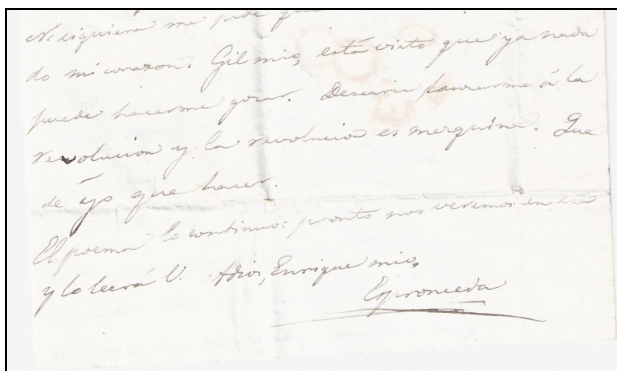 Ni siquiera me pude que
do mi corazon. Gil mio, está visto que ya nada
puede hacerme gozar. Desearia lanzarme á la
revolucion y la revolucion es mezquina. Que
de ájo que hacer.
El poema lo continuo: pronto nos veremos en
y lo leerá V. Adios, Enrique mio,
Espronceda